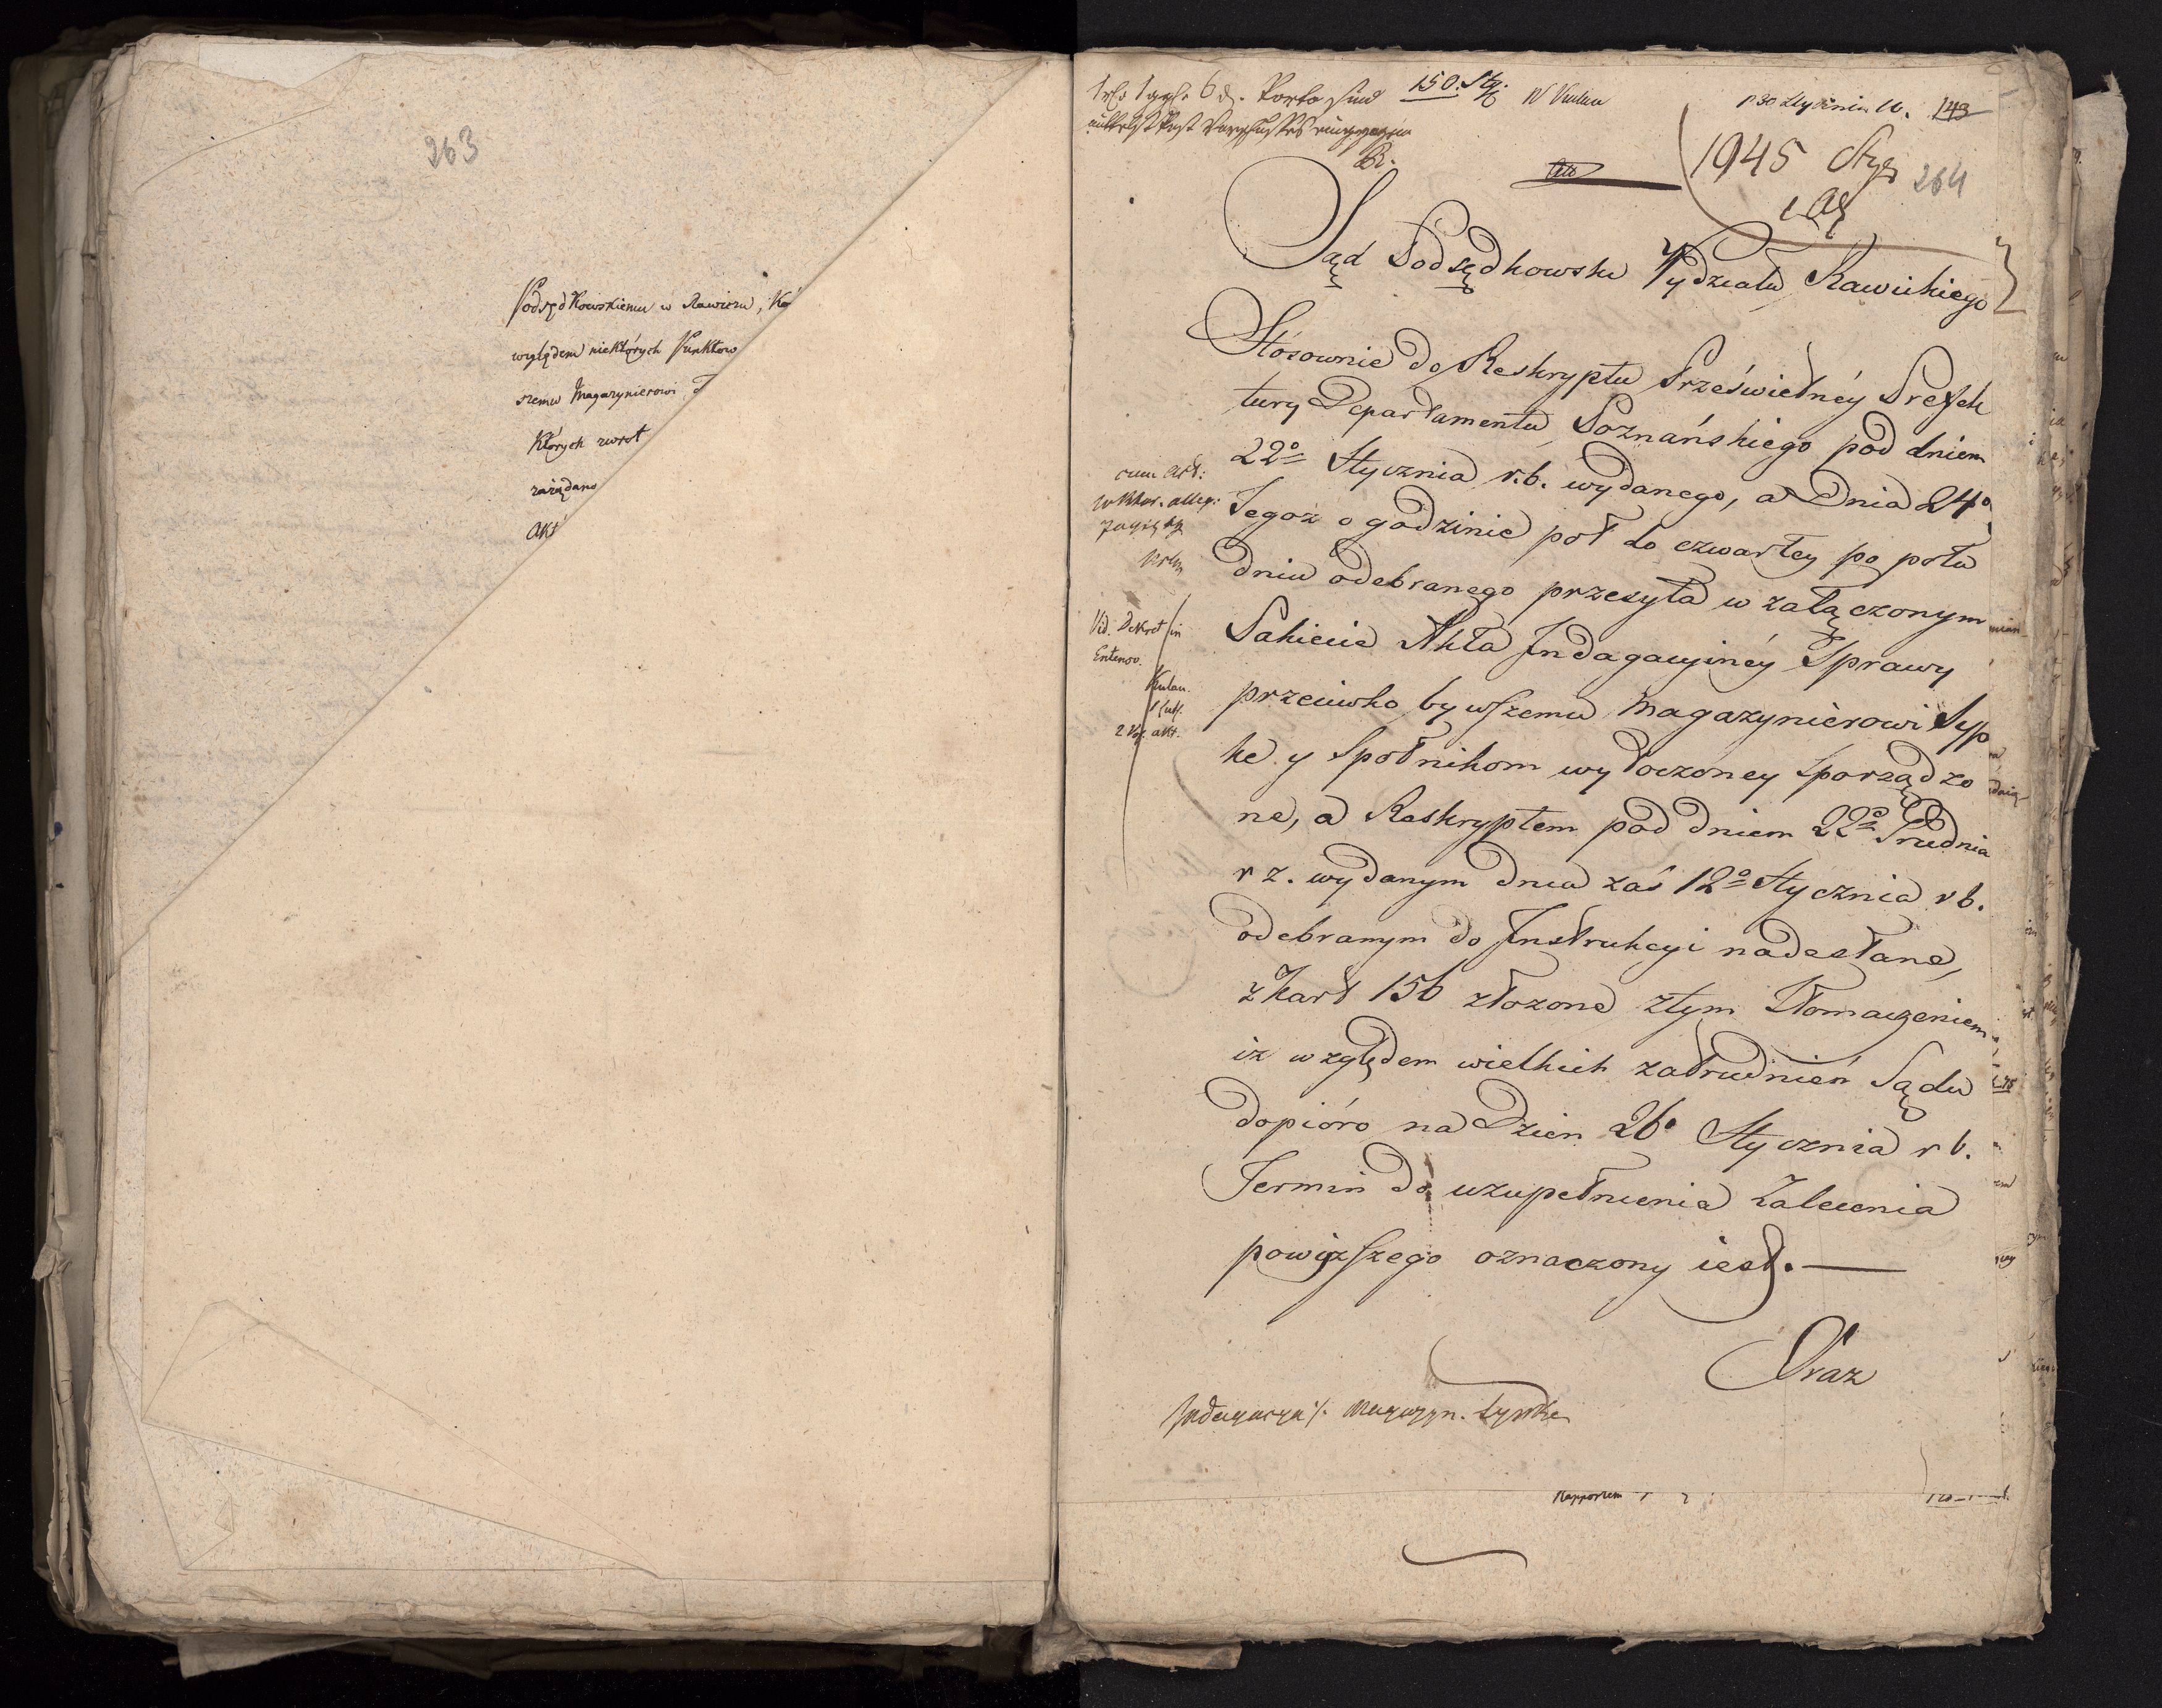 263
Podsędkowskiemu w Rawiczu,
względem niektórych Punktow
szemu Magazynierowi
których zwrot
zażądano
Akt
150. Porto
1945 Sty
264
143
Sąd Podsędkowski Wydziału Rawickiego
Stósownie do Reskryptu Prześwietnéy Prefek
tury Departamentu Poznańskiego pod dniem
22º Stycznia r.b. wydanego, a Dnia 24º
Tegoż o godzinie poł do czwartey po połu
dniu odebranego przesyła w załączonym
Pakiecie Akta Indagacyinéy Sprawy
przeciwko bywszemu Magazynierowi Syp
ke y Społnikom wytoczoney sporządzo
ne, a Reskryptem pod dniem 22º Grudnia
r z. wydanym dnia zaś 12º Stycznia r b.
odebranym do Instrukcyi nadesłane,
z kart 156 złożone z tym Tłomaczeniem
iż względem wielkich zatrudnień Sądu
dopióro na Dzien 26º Stycznia r b.
Termin do uzupełnienia Zalecenia
powyższego oznaczony iest.
Oraz
cum Act:
Vid. Dekret in
2 Vol. akt.
Indagacya %. Magazyn. Sypke
Rapportem